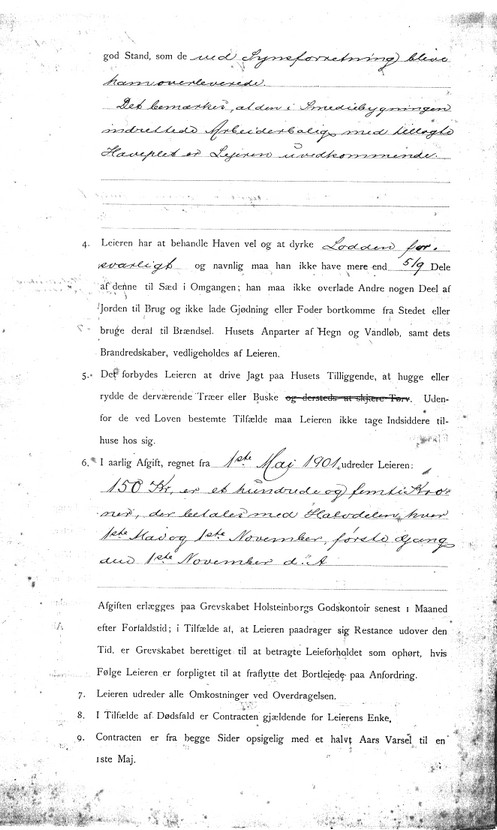 god Stand, som de ved Synsforretning) blive
ham overleverede.
Det bemærkes, at den i Smediebygningen
indrettede Arbeiderbolig med tillagte
Haveplet er Lejeren uvedkommende.
4. Leieren har at behandle Haven vel og at dyrke Lodden for-
svarligt og navnlig maa han ikke have mere end 5/9 Dele
af denne til Sæd i Omgangen; han maa ikke overlade Andre nogen Deel af
Jorden til Brug og ikke lade Gjødning eller Foder bortkomme fra Stedet eller
bruge deraf til Brændsel. Husets Anparter af Hegn og Vandløb, samt dets
Brandredskaber, vedligeholdes af Leieren.
5. Det forbydes Leieren at drive Jagt paa Husets Tilliggende, at hugge eller
rydde de derværende Træer eller Buske og dersteds at skjære Tørv. Uden-
for de ved Loven bestemte Tilfælde maa Leieren ikke tage Indsiddere til-
huse hos sig.
6. I aarlig Afgift, regnet fra 1ste Maj 1901 udreder Leieren:
150 Kr, er et hundrede og femti Kro-
ner, der betales med Halvdelen hver
1ste Maj og 1ste November, første Gang
den 1ste November d. A
Afgiften erlægges paa Grevskabet Holsteinborgs Godskontoir senest 1 Maaned
efter Forfaldstid; i Tilfælde af, at Leieren paadrager sig Restance udover den
Tid, er Grevskabet berettiget til at betragte Leieforholdet som ophørt, hvis
Følge Leieren er forpligtet til at fraflytte det Bortleiede paa Anfordring.
7. Leieren udreder alle Omkostninger ved Overdragelsen.
8. I Tilfælde af Dødsfald er Contracten gjældende for Leierens Enke,
9. Contracten er fra begge Sider opsigelig med et halvt Aars Varsel til en
1ste Maj.